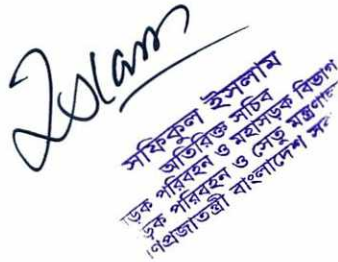 Islam
সফিকুল ইসলাম
অতিরিক্ত সচিব
ড়ক পরিবহন ও মহাসড়ক বিভাগ
ড়ক পরিবহন ও সেতু মন্ত্রণাল
ণপ্রজাতন্ত্রী বাংলাদেশ সর